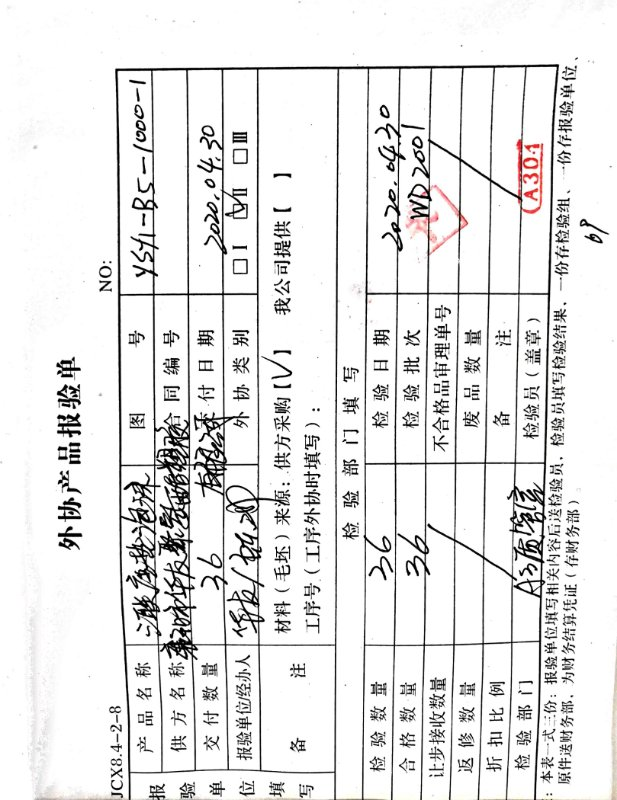 外协产品报验单
JCX8.4-2-8 NO:
报验单位填写
产品名称 图号 YSY1-B5-1000-1
供方名称 合同编号
交付数量 36 交付日期 2020.04.30
报验单位/经办人 外协类别 □Ⅰ ☑Ⅱ □Ⅲ
备注 材料(毛坯)来源：供方采购【√】 我公司提供【 】
工序号(工序外协时填写)：
检验部门填写
检验数量 36 检验日期 2020.04.30
合格数量 36 检验批次 WD2001
让步接收数量 不合格品审理单号
返修数量 废品数量
折扣比例 备注
检验部门 检验员(盖章) A301
：本表一式三份：报验单位填写相关内容后送检验员、检验员填写检验结果、一份存检验组、一份存报验单位、
原件送财务部，为财务结算凭证(存财务部)